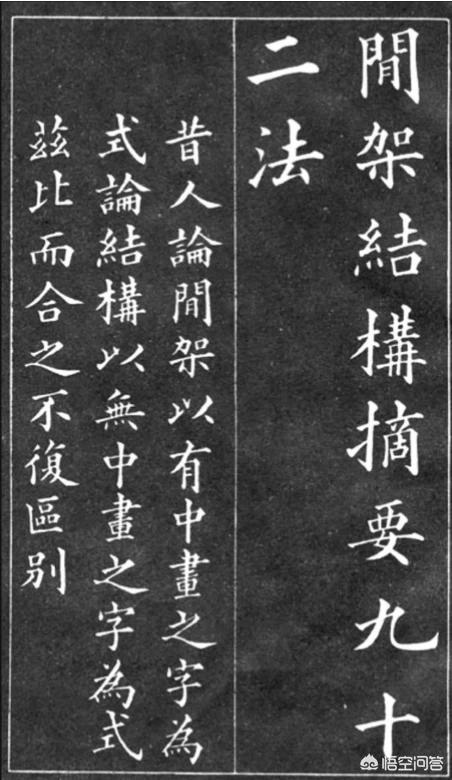 間架結構摘要九十
二法
昔人論間架以有中畫之字為
式論結構以無中畫之字為式
茲比而合之不復區别
悟空问答